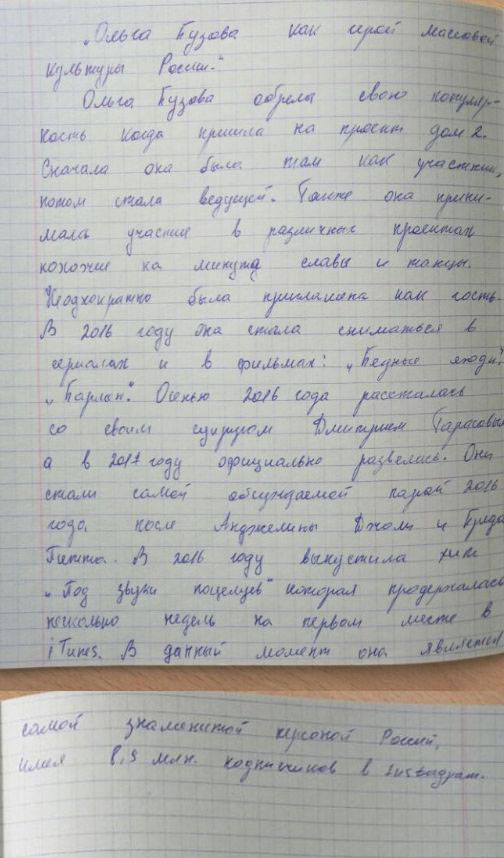 „Ольга Бузова как герой массовой
культуры России."
Ольга Бузова обрела свою популяр-
ность когда пришла на проект дом 2.
Сначала она была там как участник,
потом стала ведущей. Также она прини-
мала участие в различных проектах
похожие на минута славы и танцы.
Неоднократно была приглашена как гость.
В 2016 году она стала сниматься в
сериалах и в фильмах: „Бедные люди",
„Бармен". Осенью 2016 года рассталась
со своим супругом Дмитрием Тарасовым
а в 2017 году официально развелись. Они
стали самой обсуждаемой парой 2016
года после Анджелины Джоли и Бреда
Питта. В 2016 году выпустила хит
„Под звуки поцелуев" которая продержалась
несколько недель на первом месте в
iTunes. В данный момент она является
самой знаменитой персоной России,
имея 8,9 млн. подписчиков в instagram.